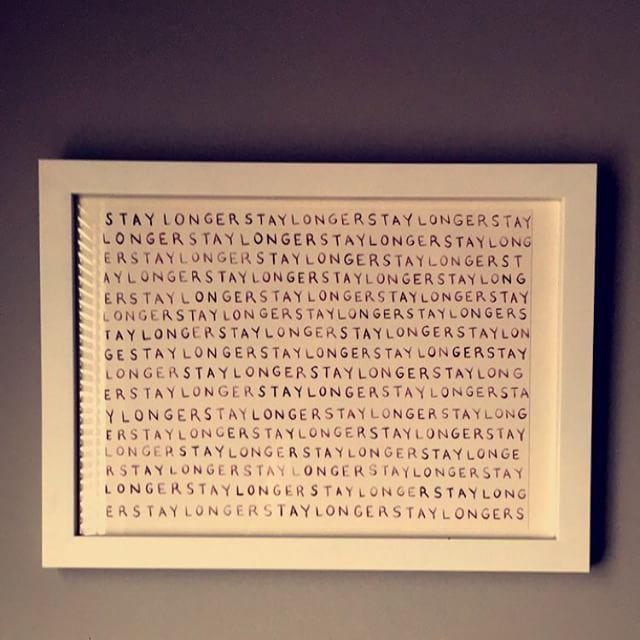 STAY LONGERSTAYLONGERSTAYLONGERSTAY
LONGERSTAYLONGERSTAYLONGERSTAYLONG
ERSTAYLONGERSTAYLONGERSTAYLONGERST
AYLONGERSTAYLONGERSTAYLONGERSTAYLONG
ERSTAYLONGERSTAYLONGERSTAYLONGERSTAY
LONGERSTAYLONGERSTAYLONGERSTAYLONGERS
TAYLONGERSTAYLONGERSTAYLONGERSTAYLON
GESTAYLONGERSTAYLONGERSTAYLONGERSTAY
LONGERSTAYLONGERSTAYLONGERSTAYLONG
ERSTAYLONGERSTAYLONGERSTAYLONGERSTA
YLONGERSTAYLONGERSTAYLONGERSTAYLONG
ERSTAYLONGERSTAYLONGERSTAYLONGERSTAY
LONGERSTAYLONGERSTAYLONGERSTAYLONGE
RSTAYLONGERSTAYLONGERSTAYLONGERSTAY
LONGERSTAYLONGERSTAYLONGERSTAYLONG
ERSTAYLONGERSTAYLONGERSTAYLONGERS